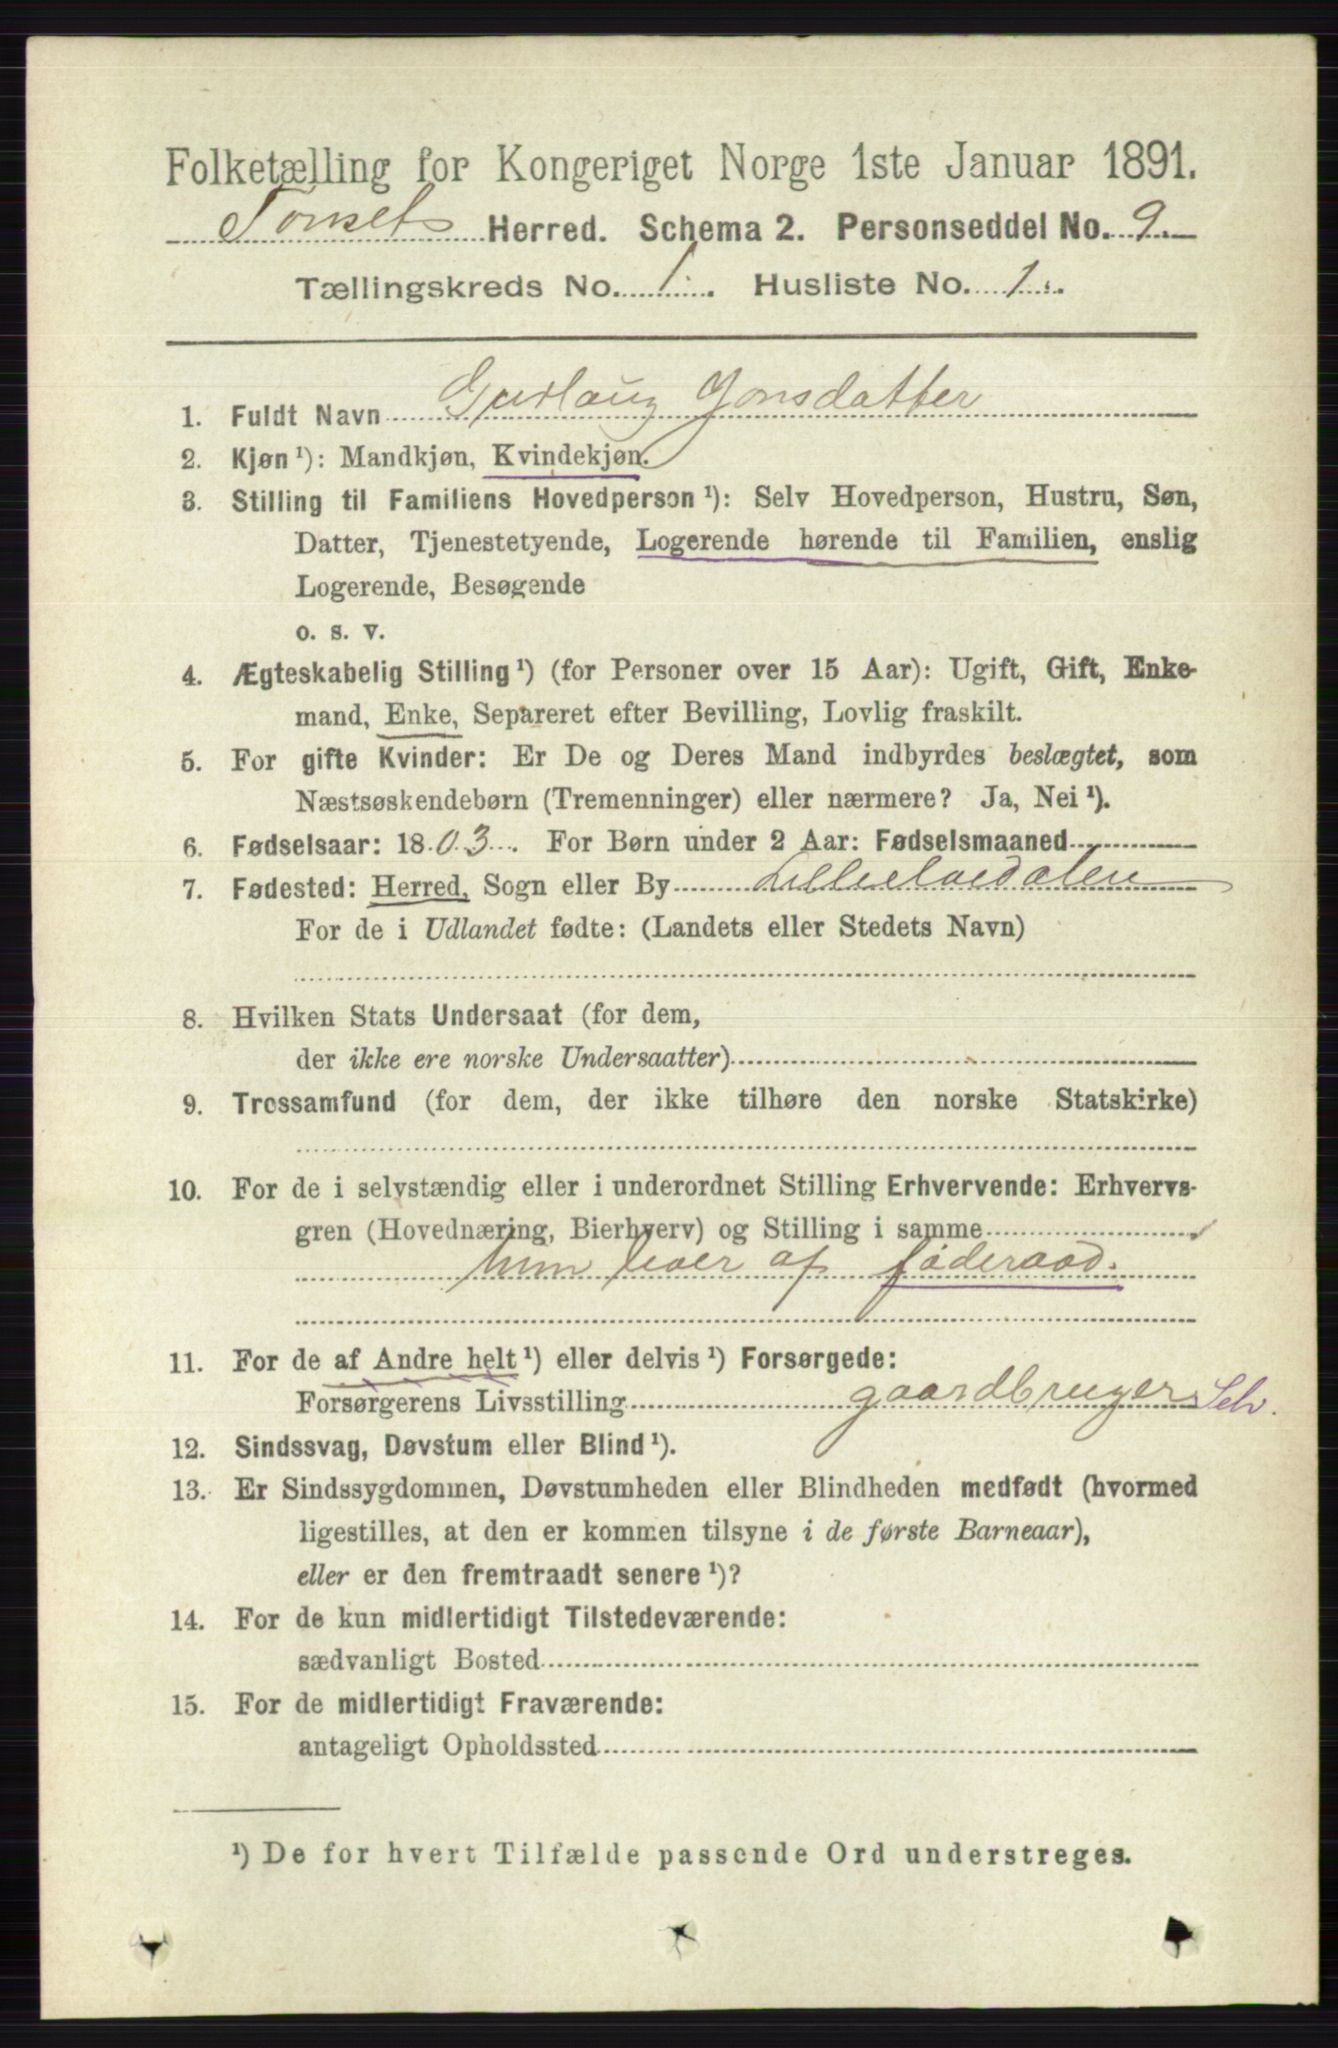 Folketælling for Kongeriget Norge 1ste Januar 1891.
Tønset Herred. Schema 2. Personseddel No. 9.
Tællingskreds No. 1. Husliste No. 1.
1. Fuldt Navn Gurlaug Jonsdatter
2. Kjøn ¹): Mandkjøn, Kvindekjøn.
3. Stilling til Familiens Hovedperson ¹): Selv Hovedperson, Hustru, Søn,
Datter, Tjenestetyende, Logerende hørende til Familien, enslig
Logerende, Besøgende
o. s. v.
4. Ægteskabelig Stilling ¹) (for Personer over 15 Aar): Ugift, Gift, Enke-
mand, Enke, Separeret efter Bevilling, Lovlig fraskilt.
5. For gifte Kvinder: Er De og Deres Mand indbyrdes beslægtet, som
Næstsøskendebørn (Tremenninger) eller nærmere? Ja, Nei ¹).
6. Fødselsaar: 1803. For Børn under 2 Aar: Fødselsmaaned
7. Fødested: Herred, Sogn eller By Lilleelvedalen
For de i Udlandet fødte: (Landets eller Stedets Navn)
8. Hvilken Stats Undersaat (for dem,
der ikke ere norske Undersaatter)
9. Trossamfund (for dem, der ikke tilhøre den norske Statskirke)
10. For de i selvstændig eller i underordnet Stilling Erhvervende: Erhvervs-
gren (Hovednæring, Bierhverv) og Stilling i samme
hun lever af føderaad.
11. For de af Andre helt ¹) eller delvis ¹) Forsørgede:
Forsørgerens Livsstilling gaardbruger Selv.
12. Sindssvag, Døvstum eller Blind ¹).
13. Er Sindssygdommen, Døvstumheden eller Blindheden medfødt (hvormed
ligestilles, at den er kommen tilsyne i de første Barneaar),
eller er den fremtraadt senere ¹)?
14. For de kun midlertidigt Tilstedeværende:
sædvanligt Bosted
15. For de midlertidigt Fraværende:
antageligt Opholdssted
¹) De for hvert Tilfælde passende Ord understreges.